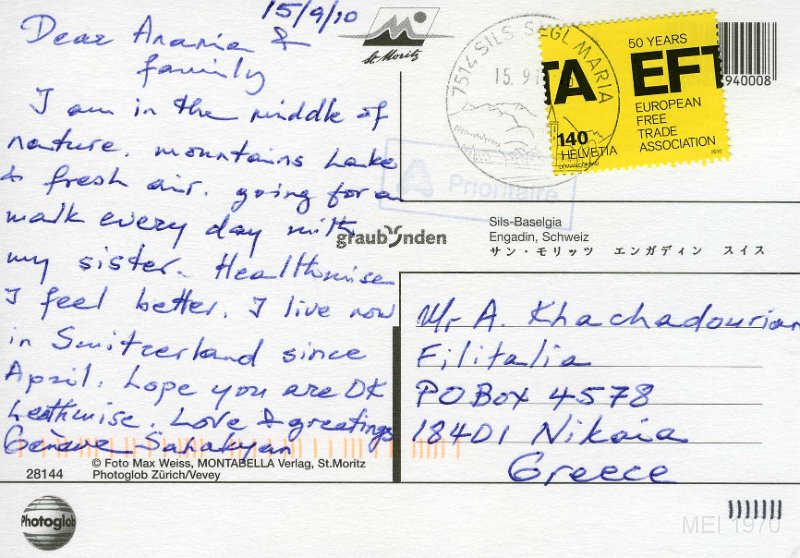 15/9/10
Dear Arania &
family
I am in the middle of
nature. mountains Lake
& fresh air. going for a
walk every day with
my sister. Healthwise
I feel better. I live now
in Switzerland since
April. hope you are OK
healthwise. Love & greetings
Genève Sahakyan
28144
© Foto Max Weiss, MONTABELLA Verlag, St.Moritz
Photoglob Zürich/Vevey
Photoglob
St. Moritz
7514 SILS SEGL MARIA
15. 9.1
TA EFT
50 YEARS
EUROPEAN
FREE
TRADE
ASSOCIATION
140
HELVETIA
2010
940008
A Prioritaire
graubünden
Sils-Baselgia
Engadin, Schweiz
サン・モリッツ エンガディン スイス
Mr A. Khachadourian
Filitalia
PO Box 4578
18401 Nikaia
Greece
MEI 1970